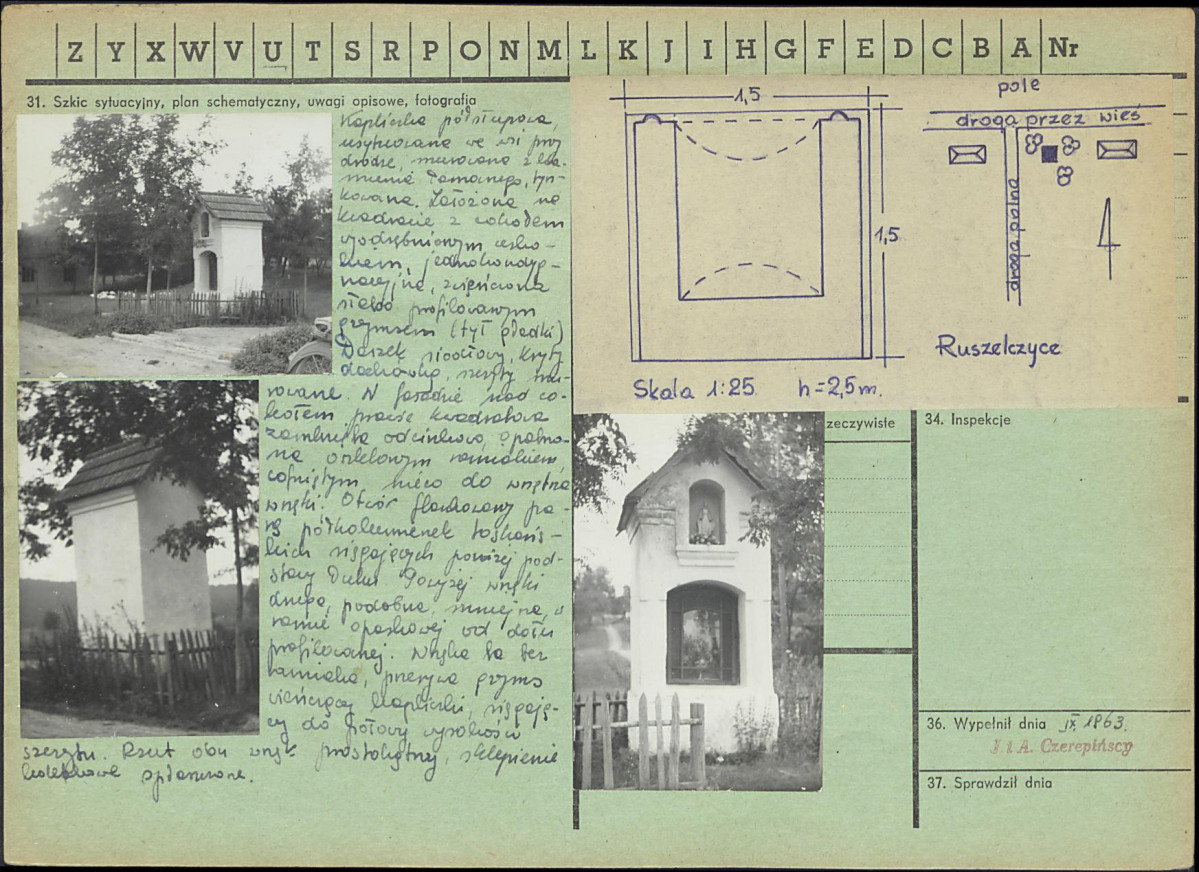 Z Y X W V U T S R P O N M L K J I H G F E D C B A Nr
31. Szkic sytuacyjny, plan schematyczny, uwagi opisowe, fotografia
Kapliczka półsłupowa,
usytuowana we wsi przy
drodze, murowana z ka-
mienia łamanego, tyn-
kowana. Założona na
kwadracie z cokołem
wyodrębnionym
jednokondyg-
nacyjna, zwieńczona
profilowanym
gzymsem (tył gładki)
Daszek siodłowy, kryty
dachówką, szczyty mu-
rowane. W fasadzie nad co-
kołem prawie kwadratowa
zamknięta odcinkowo,
ramiakiem,
cofniętym nieco do wnętrza
wnęki. Otwór flankowany pa-
rą półkolumienek toskań-
skich sięgających poniżej pod-
stawy łuku. Powyżej wnęki
druga, podobna, mniejsza, o
ramie opaskowej od dołu
profilowanej. Wnęka ta bez
ramiaka, przerywa gzyms
wieńczący kapliczki, sięgają-
cy do połowy wysokości
szczytu. Rzut obu wnęk prostokątny, sklepienie
kolebkowe spłaszczone.
1,5
1,5
Skala 1:25. h=2,5m.
pole
droga przez wieś
droga polna
Ruszelczyce
zeczywiste
34. Inspekcje
36. Wypełnił dnia IX 1963.
J i A. Czerepińscy
37. Sprawdził dnia